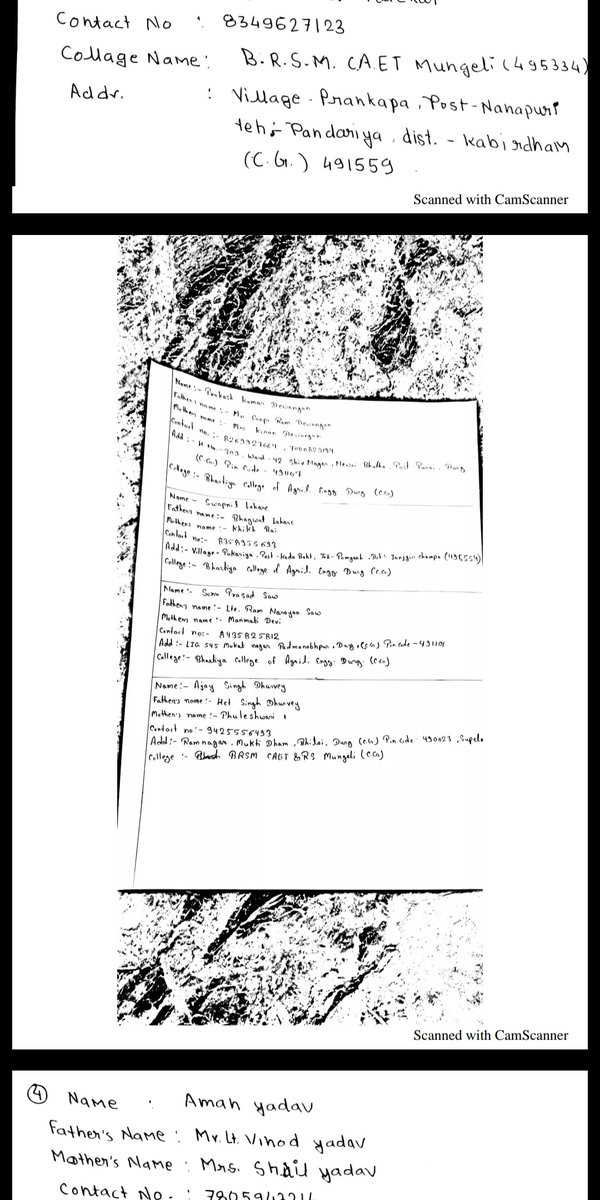 Contact No : 8349627123
Collage Name : B.R.S.M. CAET Mungeli (495334)
Addr. : Village - Prankapa, Post - Nanapuri
teh :- Pandariya, dist. - Kabirdham
(C.G.) 491559
Scanned with CamScanner
Name :- Prakash Kumar Dewangan
Father's name :- Mr. Gopi Ram Dewangan
Mother name :- Mrs Kiran Dewangan
Contact no. :-
Add :- H. No. - 303, Ward - 42 Shiv Nagar,
(C.G.) Pin Code - 491107
College :- Bhartiya College of Agril. Engg Durg (C.G)
Name - Swapnil Lahare
Father's name :- Bhagwat Lahare
Mother's name :- Rai
Contact no :- 8358355693
Add :- Village - Pakariya, Post - Teh - Pamgarh, Janjgir champa (495554)
College :- Bhartiya College of Agril. Engg Durg (C.G)
Name :- Sonu Prasad Saw
Father's name :- Lte. Ram Narayan Saw
Mother's name :- Manmati Devi
Contact no :-
Add :- LIG 545 Mukat nagar Padmanabhpur, Durg, (C.G) Pin code - 491101
College :- Bhartiya College of Agril. Engg. Durg. (C.G)
Name :- Ajay Singh Dhurvey
Father's name :- Het Singh Dhurvey
Mother's name :- Phuleshwari
Contact no :- 9425556493
Add :- Ramnagar, Mukti Dham, Bhilai, Durg (C.G) Pin code - 490023, Supela
College :- BRSM CAET & RS Mungeli (C.G)
Scanned with CamScanner
4 Name : Aman yadav
Father's Name : Mr. Lt. Vinod yadav
Mother's Name : Mrs. Shail yadav
Contact No. :